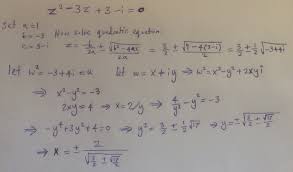 z² - 3z + 3 - i = 0
Set a = 1
b = -3 Now solve quadratic equation
c = 3 - i z = -b/2a ± √(b² - 4ac)/2a = 3/2 ± √(9 - 4(3-i))/2 = 3/2 ± 1/2 √(-3+4i)
let w² = -3+4i = u let w = x + iy ⇒ w² = x² - y² + 2xyi
⇒ x² - y² = -3
2xy = 4 ⇒ x = 2/y ⇒ 4/y² - y² = -3
⇒ -y⁴ + 3y² + 4 = 0 ⇒ y² = 3/2 ± 1/2 √17 ⇒ y = ± √(3/2 + √17/2)
⇒ x = ± 2/√(3/2 ± √17/2)